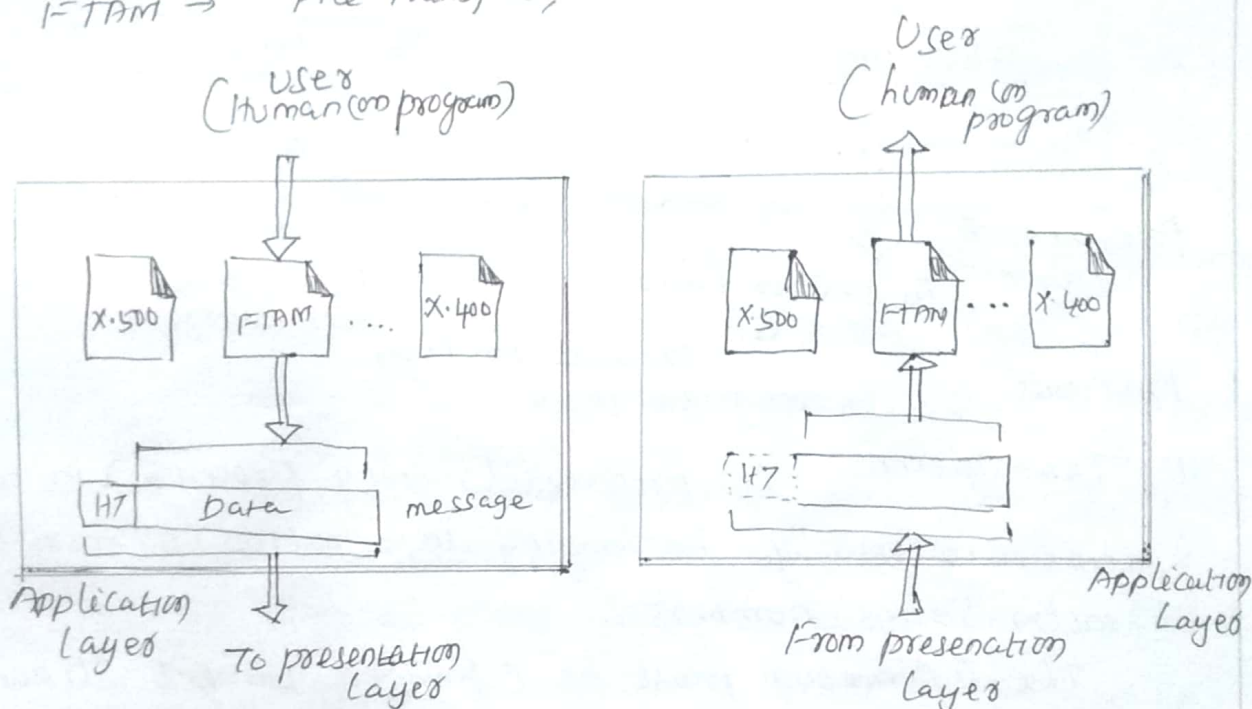 FTAM →
User
(Human (or) program)
X.500
FTAM
...
X.400
H7
Data
message
Application
Layer
To presentation
Layer
User
(human (or)
program)
X.500
FTAM
...
X.400
H7
Application
Layer
From presenation
Layer